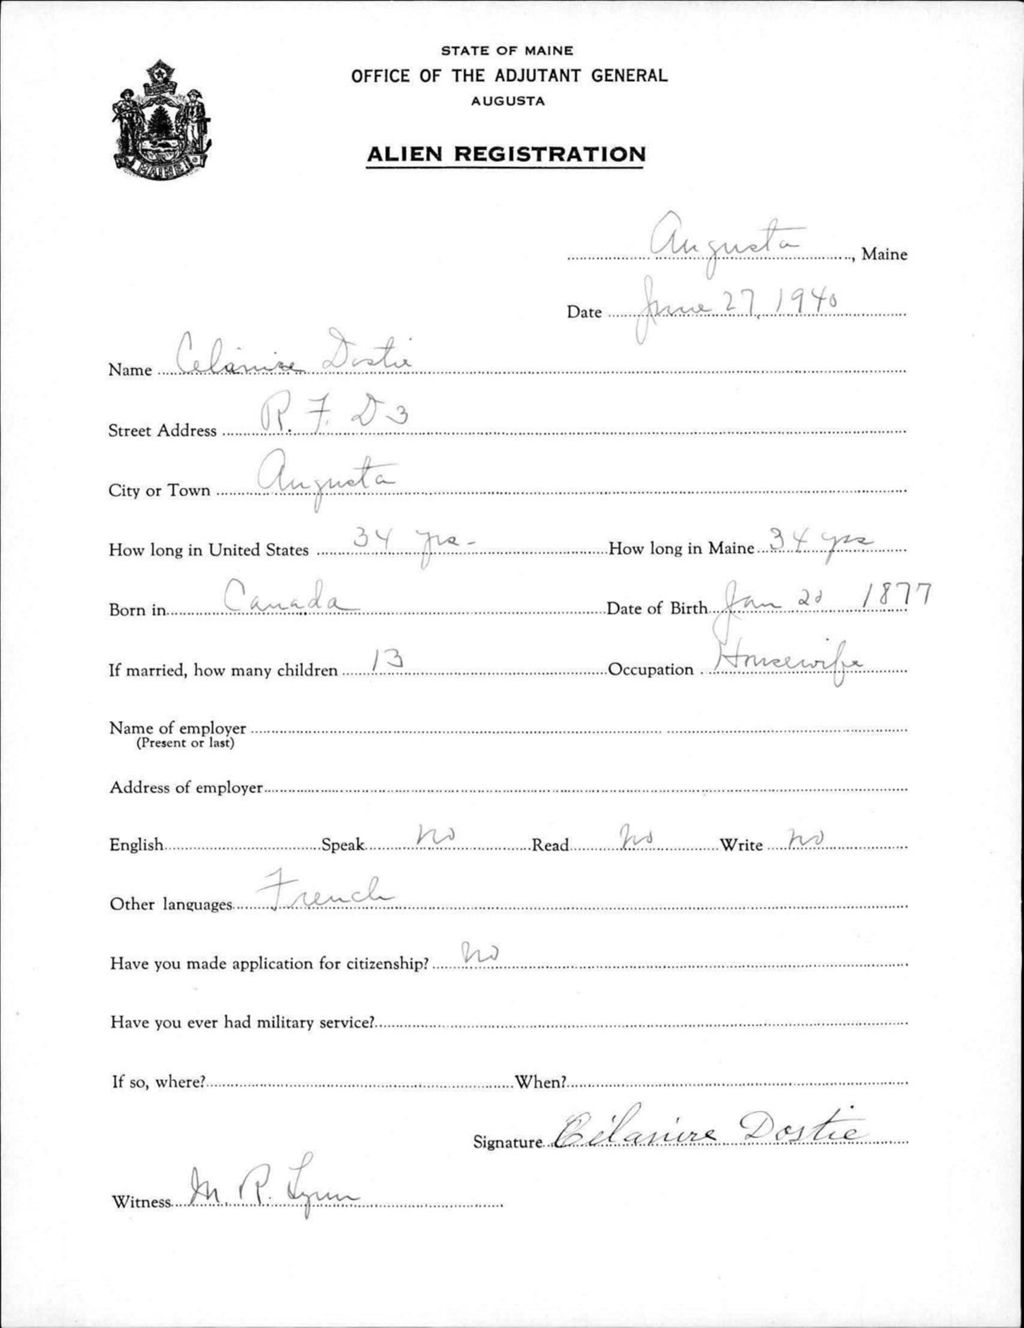 STATE OF MAINE
OFFICE OF THE ADJUTANT GENERAL
AUGUSTA
ALIEN REGISTRATION
MAINE
Augusta, Maine
Date June 27, 1940
Name Celanire Dostie
Street Address R. F. D 3
City or Town Augusta
How long in United States 34 yrs - How long in Maine 34 yrs
Born in Canada Date of Birth Jan 20 1877
If married, how many children 13 Occupation Housewife
Name of employer
(Present or last)
Address of employer
English Speak No Read No Write No
Other languages French
Have you made application for citizenship? No
Have you ever had military service?
If so, where? When?
Signature Célanire Dostie
Witness M. R. Lynn